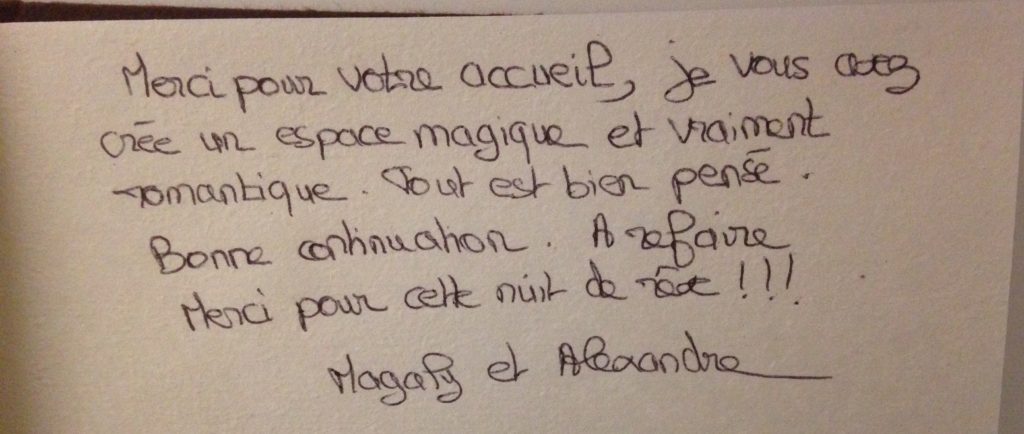 Merci pour votre accueil, je vous avez
crée un espace magique et vraiment
romantique. Tout est bien pensé.
Bonne continuation. A refaire
Merci pour cette nuit de rêve !!!
Magaly et Alexandre